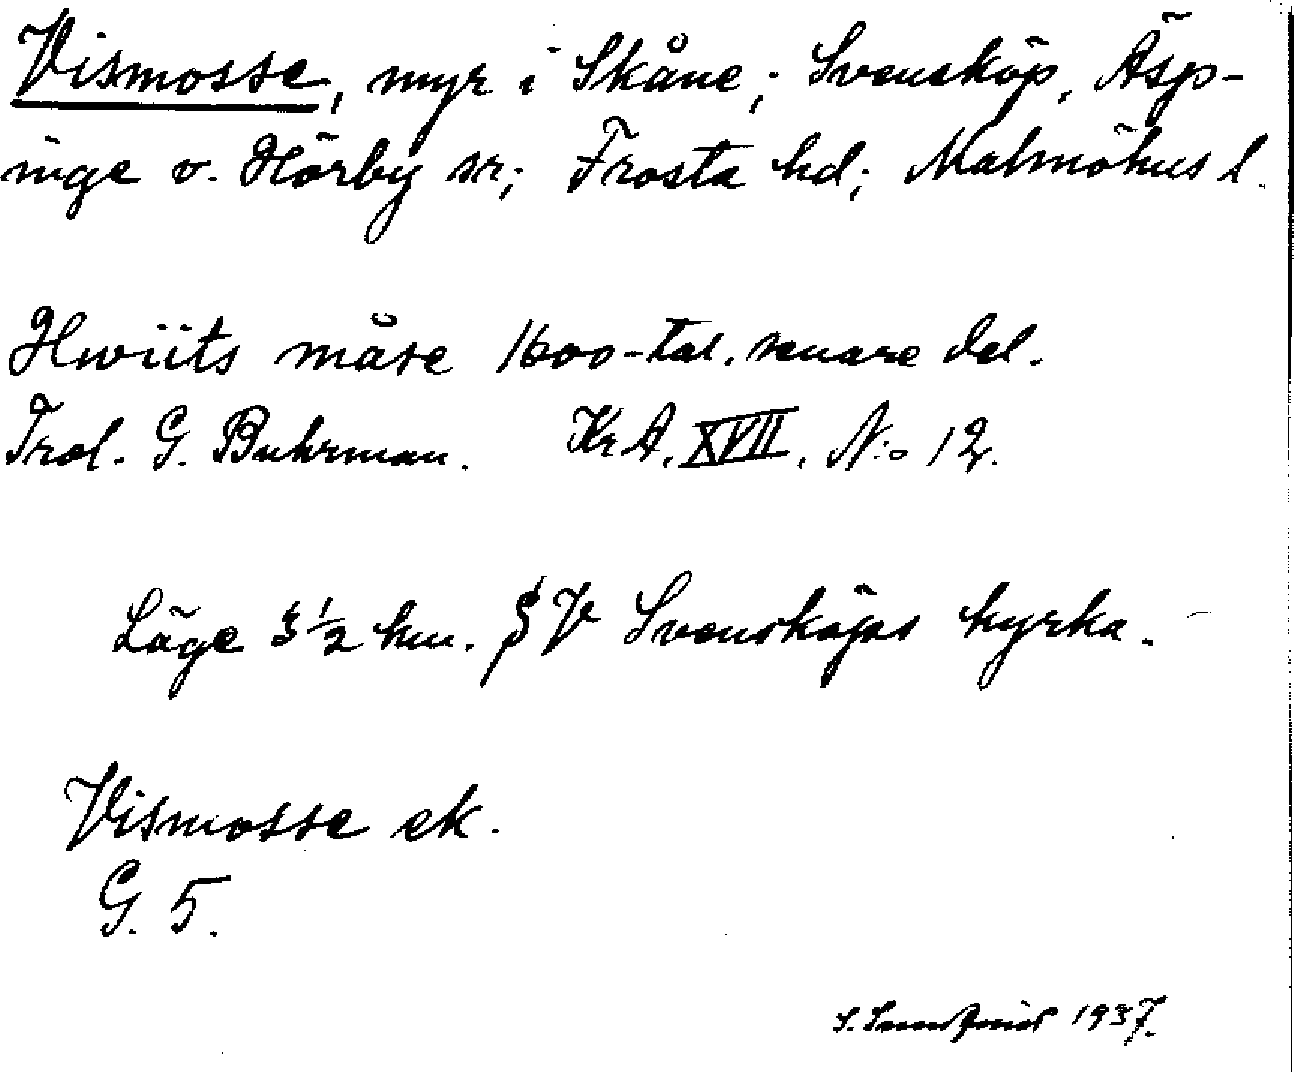 Vismosse, myr i Skåne; Svensköp, Äsp-
inge o. Hörby sr; Frosta hd; Malmöhus l.
Hwiits måse 1600-tal. senare del.
Trol. G. Buhrman. Kr A. XVII. N:o 12.
Läge 3 1/2 km. SV Svensköps kyrka.
Vismosse ek.
G. 5.
1937.